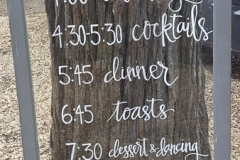 4:30-5:30 cocktails
5:45 dinner
6:45 toasts
7:30 dessert & dancing